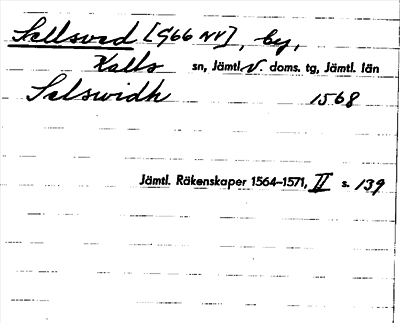 Sällsved [G66 NV], by,
Kalls sn, Jämtl. V. doms. tg, Jämtl. län
Selswidh 1568
Jämtl. Räkenskaper 1564–1571, II s. 139